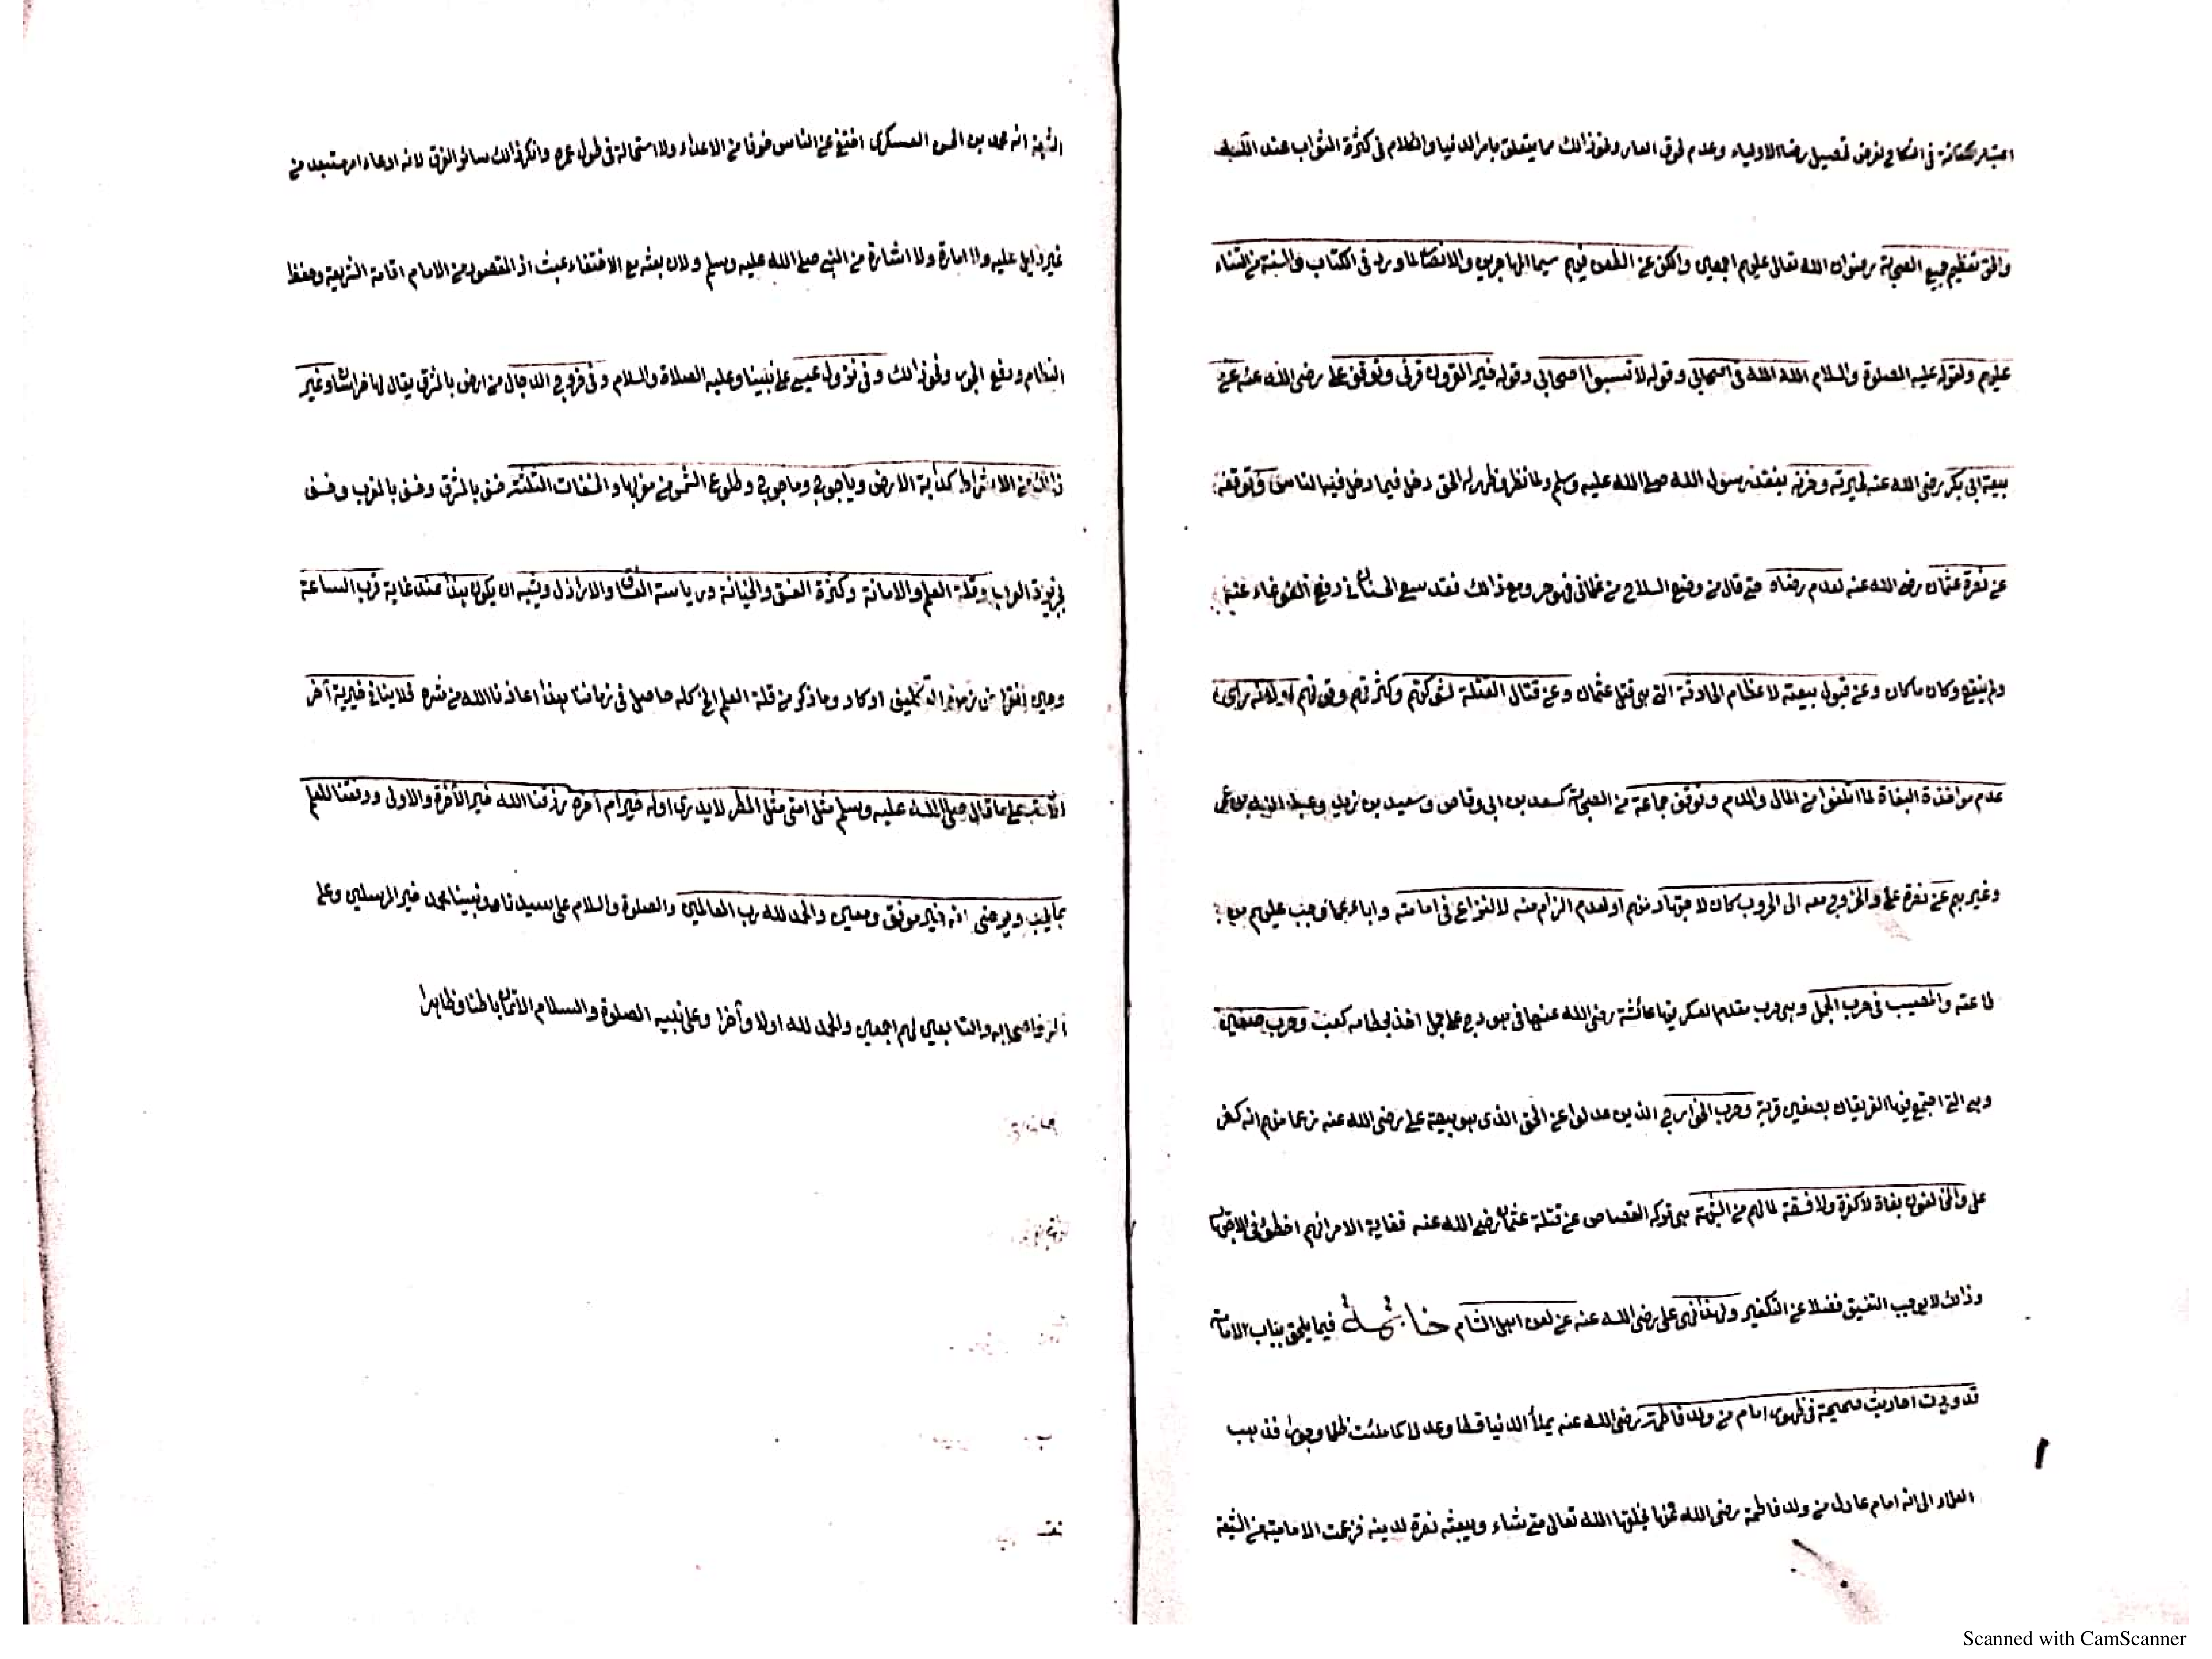 اعتبار الكفائة في النكاح لغرض تحصيل رضاء الاولياء وعدم لحوق العار ونحو ذالك مما يتعلق بامر الدنيا والكلام في كثرة الثواب عند الله
والحق تعظيم جميع الصحابة رضوان الله تعالى عليهم اجمعين والكف عن الطعن فيهم سيما المهاجرين والانصار لما ورد في الكتاب والسنة من الثناء
عليهم ولقوله عليه الصلوة والسلام الله الله في اصحابي وقوله لا تسبوا اصحابي وقوله خير القرون قرني وتوقف علي رضى الله عنه عن
بيعة ابي بكر رضى الله عنه لحيرته وحزنه بفقد رسول الله صلى الله عليه وسلم ولما نظر وظهر له الحق دخل فيما دخل فيه الناس وتوقفه
عن نصرة عثمان رضى الله عنه لعدم رضاه حتى قال من وضع السلاح من غلماني فهو حر ومع ذالك فقد سعى الحسنان في دفع الغوغاء عنه
ولم ينفع وكان ما كان وعن قبول بيعته لاعظام الحادثة التي هي قتل عثمان وعن قتال القتلة لشوكتهم وكثرتهم وقوتهم او لانه راى
عدم مواخذة البغاة لما اتلفوا من المال والدم وتوقف جماعة من الصحابة كسعد بن ابي وقاص وسعيد بن زيد وعبد الله بن عمر
وغيرهم عن نصرة علي والخروج معه الى الحروب كان لاجتهاد منهم او لعدم الزام منه لا لنزاع في امامته واباء عما وجب عليهم من
طاعته والمصيب في حرب الجمل وهي حرب مقدم العسكر فيها عائشة رضى الله عنها في هودج على جمل اخذ بخطامه كعب وحرب صفين
وهي التي اجتمع فيها الفريقان بصفين قرية وحرب الخوارج الذين عدلوا عن الحق الذى هو بيعة علي رضى الله عنه زعما منهم انه كفر
علي والمخالفون بغاة لا كفرة ولا فسقة لما لهم من الشبهة هي تركه القصاص عن قتلة عثمان رضى الله عنه فغاية الامر انهم اخطؤا في الاجتهاد
وذالك لا يوجب التفسيق فضلا عن التكفير ولهذا نهى علي رضى الله عنه عن لعن اهل الشام خاتمة فيما يلحق بباب الامامة
قد وردت احاديث صحيحة في ظهور امام من ولد فاطمة رضى الله عنه يملأ الدنيا قسطا وعدلا كما ملئت ظلما وجورا فذهب
العلماء الى انه امام عادل من ولد فاطمة رضى الله عنها يخلقه الله تعالى متى شاء ويبعثه نصرة لدينه فزعمت الامامية من الشيعة
الشيعة انه محمد بن الحسن العسكرى اختفى عن الناس خوفا من الاعداء ولا استحالة في طول عمره وانكر ذالك سائر الفرق لانه ادعاء امر مستبعد من
غير دليل عليه ولا امارة ولا اشارة من النبي صلى الله عليه وسلم ولان بعثه مع الاختفاء عبث اذ المقصود من الامام اقامة الشريعة وحفظ
النظام ودفع الجور ونحو ذالك وفي نزول عيسى على نبينا وعليه الصلاة والسلام وفي خروج الدجال من ارض بالمشرق يقال لها خراسان وغير
ذالك من الاشراط كدابة الارض وياجوج وماجوج وطلوع الشمس من مغربها والخسفات الثلثة خسف بالمشرق وخسف بالمغرب وخسف
بجزيرة العرب وقلة العلم والامانة وكثرة الفسق والخيانة ورياسة الفساق والاراذل ويشبه ان يكون هذا عند غاية قرب الساعة
وحين انقراض زمن التكليف او كاد وما ذكر من قلة العلم الخ كله حاصل في زماننا هذا اعاذنا الله من شره فلا ينافي خيرية آخر
الامة على ما قال صلى الله عليه وسلم مثل امتي مثل المطر لا يدرى اوله خير ام آخره رزقنا الله خير الآخرة والاولى ووفقنا للعلم
بما يحب ويرضى انه خير موفق ومعين والحمد لله رب العالمين والصلوة والسلام على سيدنا ونبينا محمد خير المرسلين وعلى
آله واصحابه والتابعين لهم اجمعين والحمد لله اولا وآخرا وعلى نبيه الصلوة والسلام الاتمان باطنا وظاهرا
Scanned with CamScanner